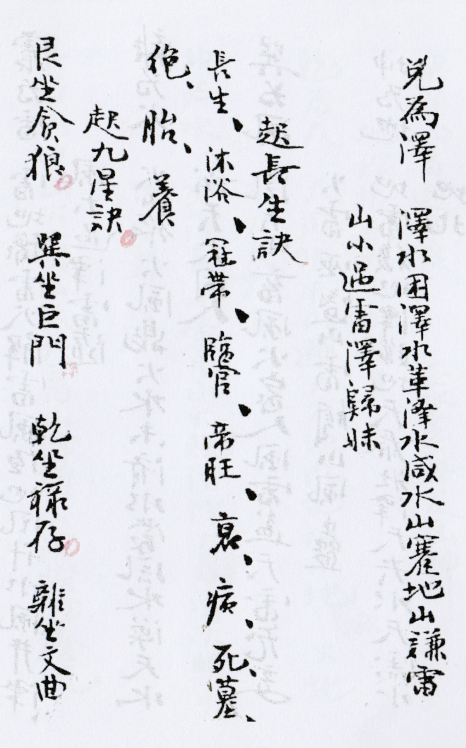 兌為澤 澤水困澤水革澤水咸水山蹇地山謙雷
山小過雷澤歸妹
起長生訣
長生、沐浴、冠帶、臨官、帝旺、衰、病、死、墓、
絕、胎、養
起九星訣
艮坐貪狼 巽坐巨門 乾坐祿存 離坐文曲